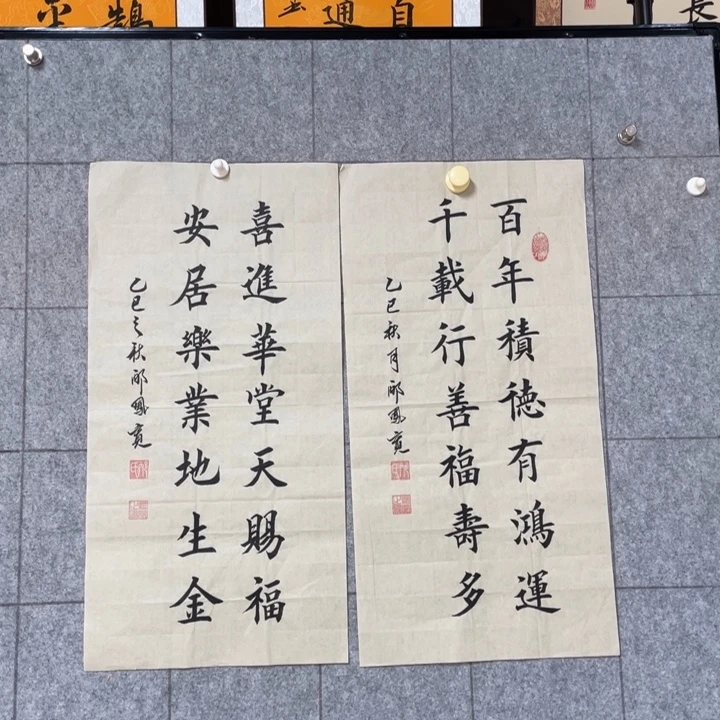 百年積德有鴻運
千載行善福壽多
乙巳秋月邴鳳寬
喜進華堂天賜福
安居樂業地生金
乙巳之秋邴鳳寬
自
通
鵠
長